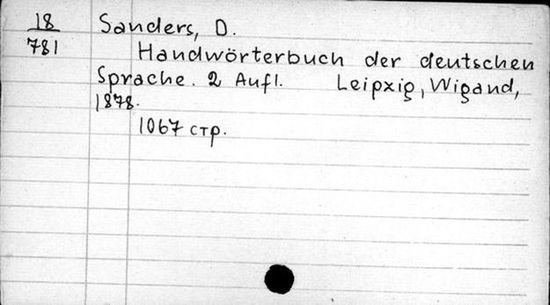 18 Sanders, D.
781 Handwörterbuch der deutschen
Sprache. 2 Aufl. Leipzig, Wigand,
1878.
1067 стр.